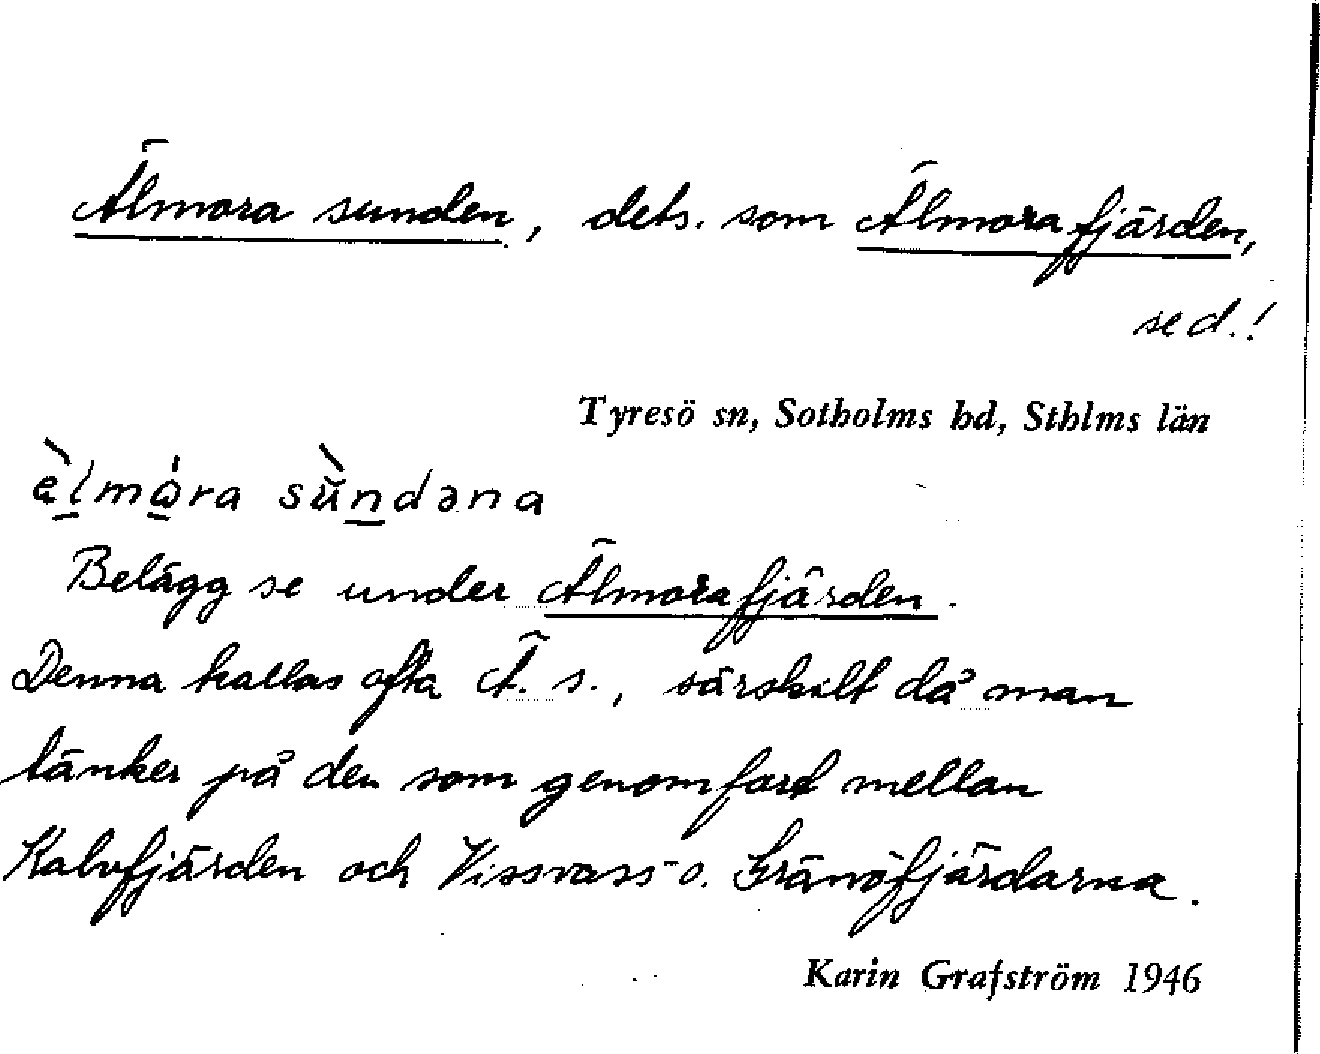 Älmora sunden, dets. som Älmorafjärden,
se d.!
Tyresö sn, Sotholms hd, Sthlms län
Belägg se under Älmorafjärden.
Denna kallas ofta Ä. s., särskilt då man
tänker på den som genomfart mellan
Kalvfjärden och Vissvass- o. Gränöfjärdarna.
Karin Grafström 1946